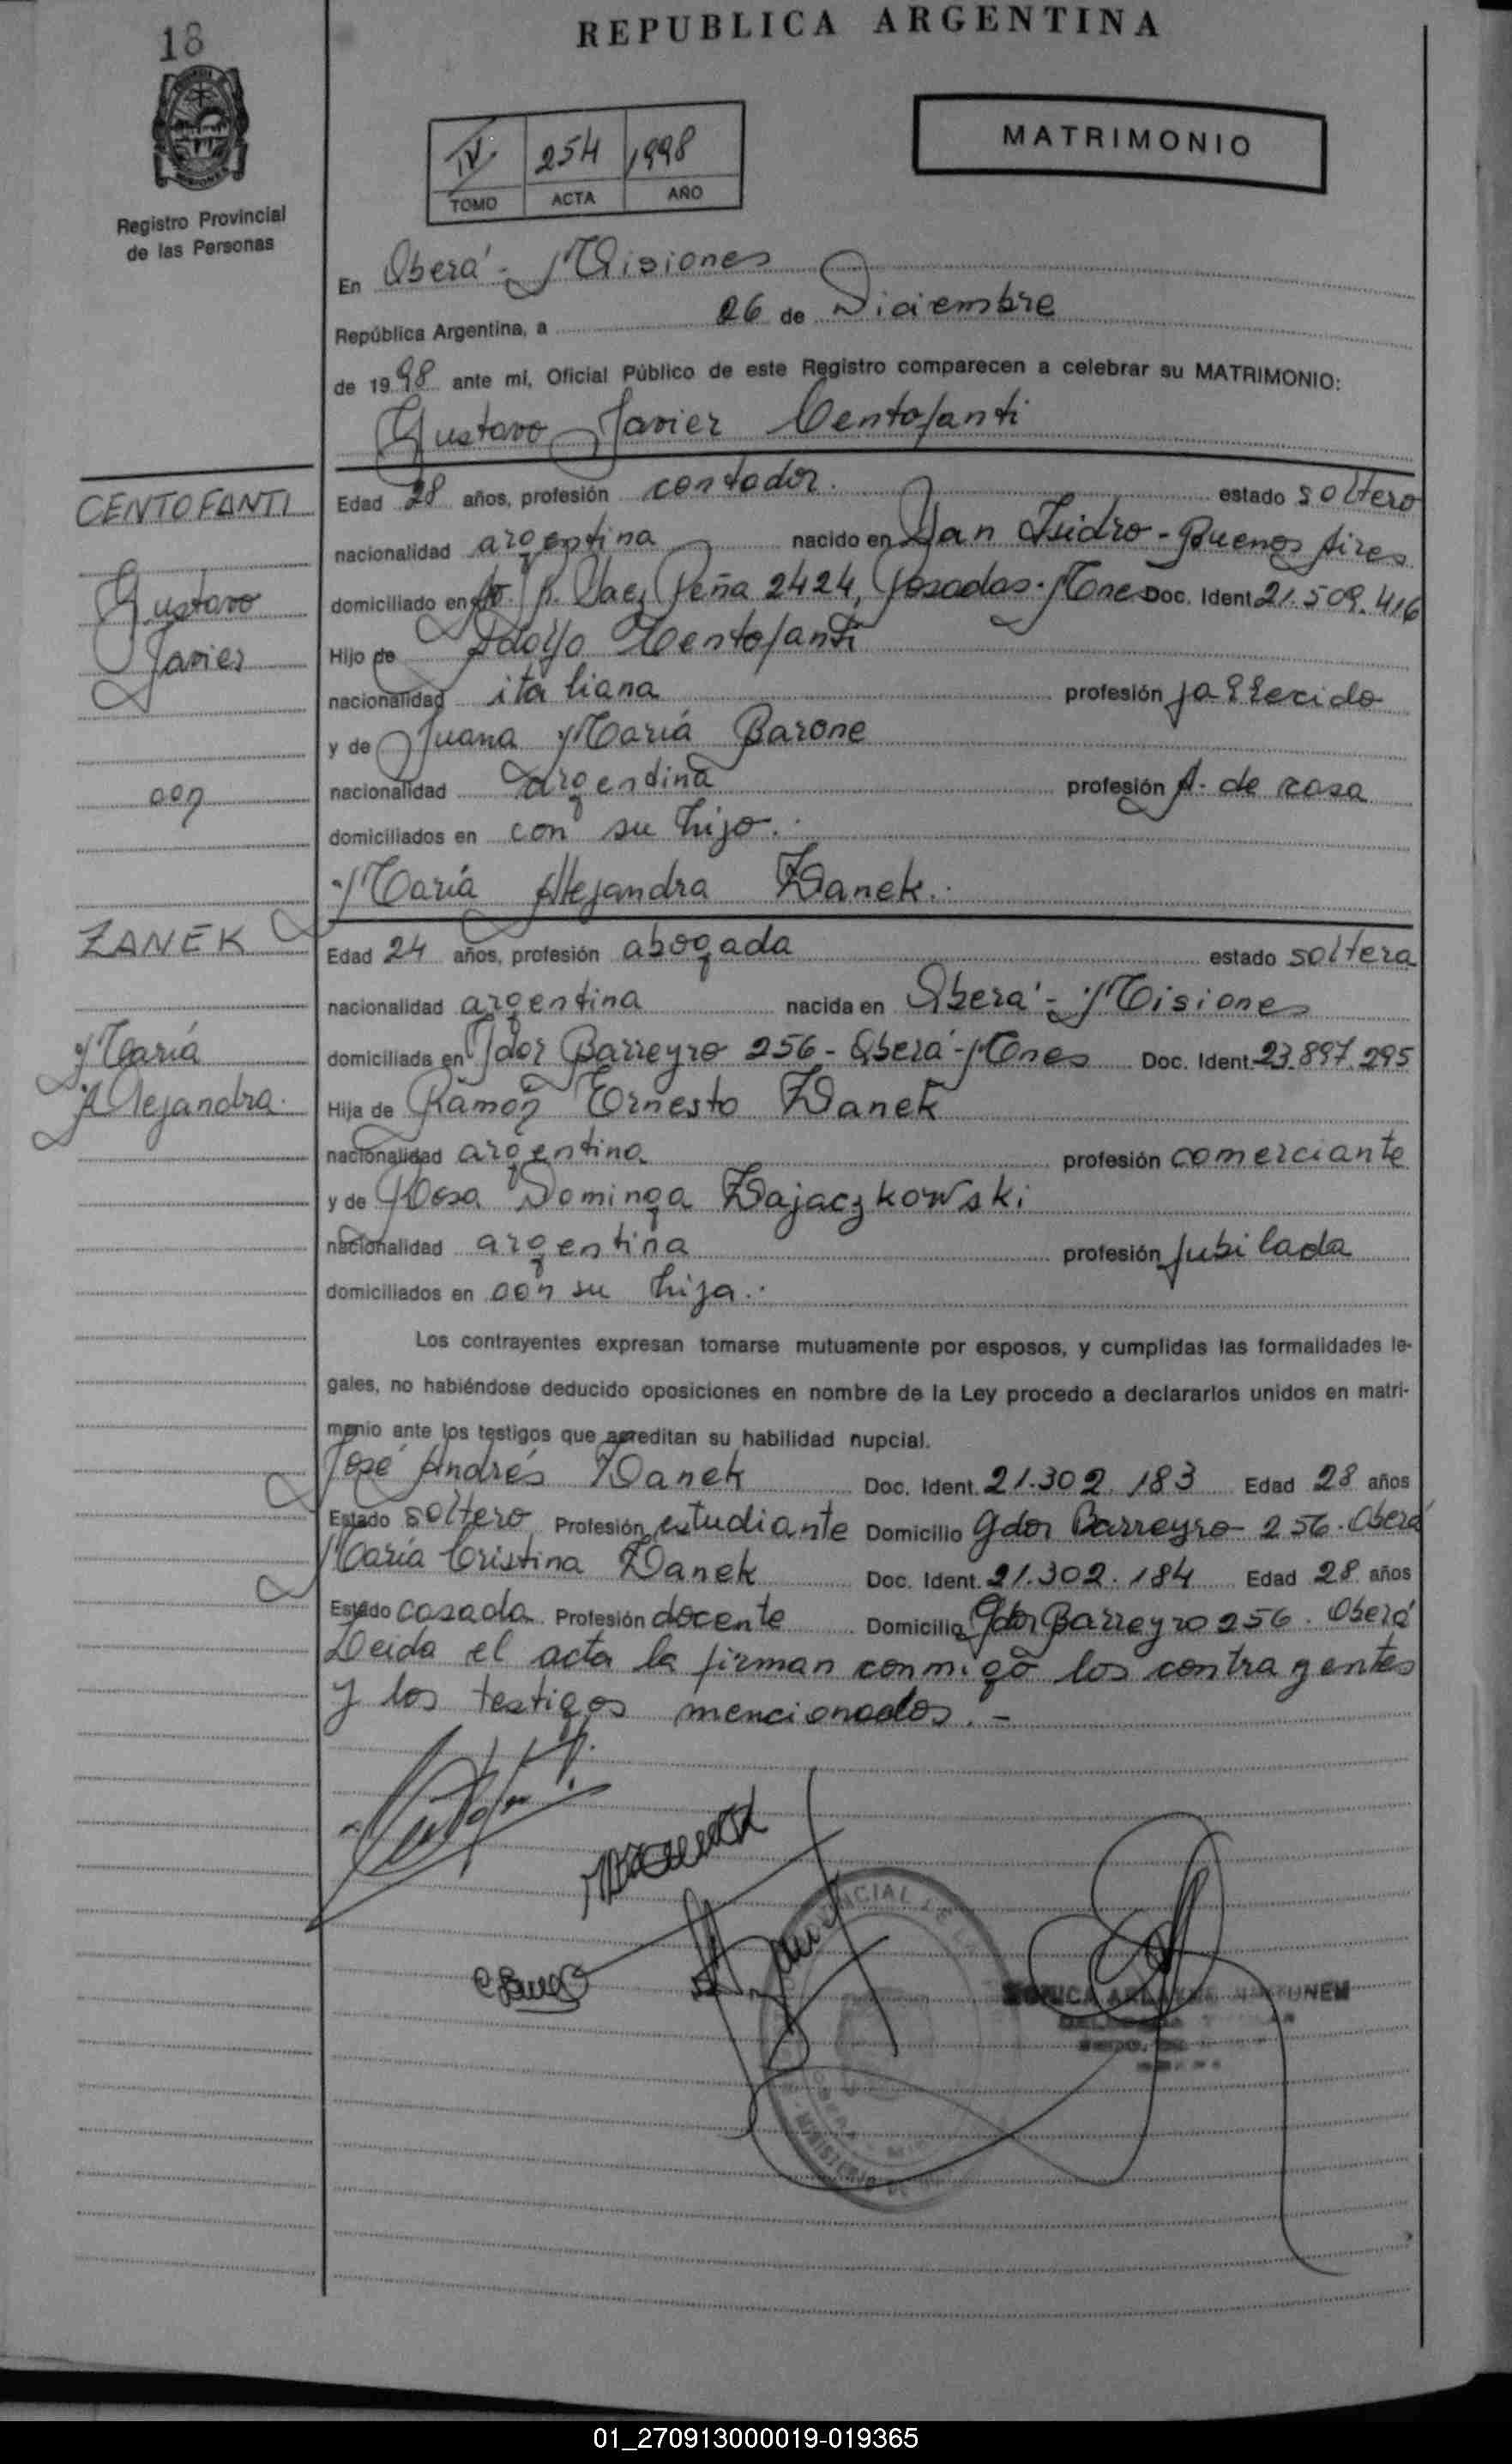 18
REPUBLICA ARGENTINA
Registro Provincial
de las Personas
IV 254 1998
TOMO ACTA AÑO
MATRIMONIO
En Oberá - Misiones
República Argentina, a 26 de Diciembre
de 1998 ante mí, Oficial Público de este Registro comparecen a celebrar su MATRIMONIO:
Gustavo Javier Centofanti
CENTOFANTI
Gustavo
Javier
con
ZANEK
María
Alejandra.
Edad 28 años, profesión contador. estado soltero
nacionalidad argentina nacido en San Isidro - Buenos Aires
domiciliado en P. Saez Peña 2424, Posadas - Mnes Doc. Ident. 21.509.416
Hijo de Adolfo Centofanti
nacionalidad italiana profesión fallecido
y de Juana María Barone
nacionalidad argentina profesión A. de casa
domiciliados en con su hijo.
María Alejandra Zanek.
Edad 24 años, profesión abogada estado soltera
nacionalidad argentina nacida en Oberá - Misiones
domiciliada en Gdor Barreyro 256 - Oberá - Mnes Doc. Ident. 23.897.295
Hija de Ramón Ernesto Zanek
nacionalidad argentina profesión comerciante
y de Rosa Dominga Zajaczkowski
nacionalidad argentina profesión jubilada
domiciliados en con su hija.
Los contrayentes expresan tomarse mutuamente por esposos, y cumplidas las formalidades le-
gales, no habiéndose deducido oposiciones en nombre de la Ley procedo a declararlos unidos en matri-
monio ante los testigos que acreditan su habilidad nupcial.
José Andrés Zanek Doc. Ident. 21.302.183 Edad 28 años
Estado soltero Profesión estudiante Domicilio Gdor Barreyro 256. Oberá
María Cristina Zanek Doc. Ident. 21.302.184 Edad 28 años
Estado casada Profesión docente Domicilio Gdor Barreyro 256. Oberá
Leida el acta la firman conmigo los contrayentes
y los testigos mencionados. -
01_270913000019-019365